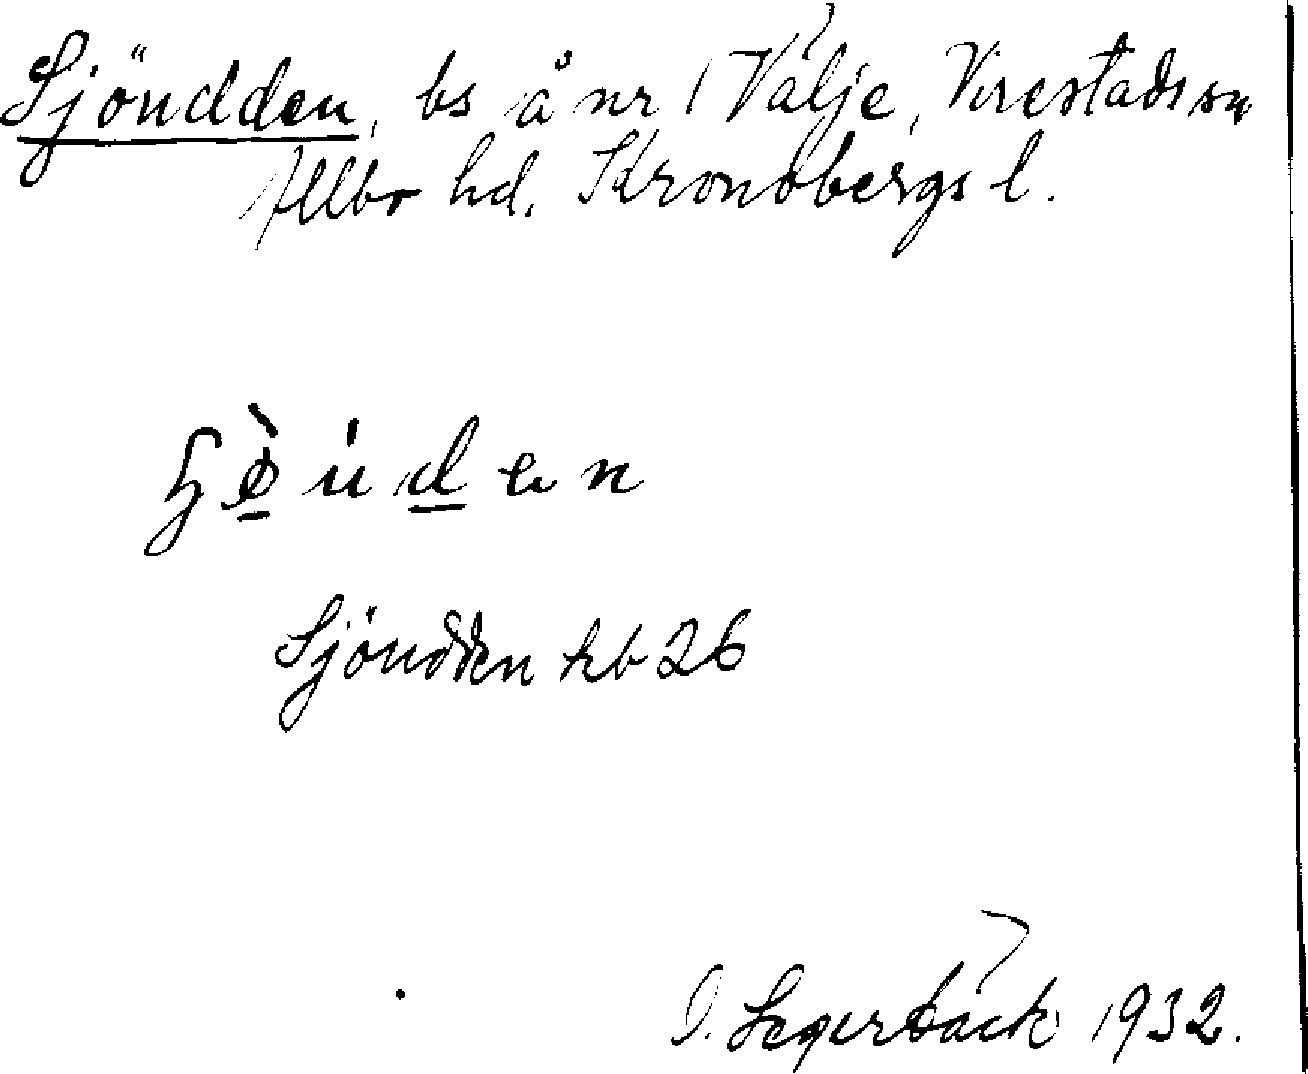 Sjöudden, bs å nr 1 Välje, Virestads sn
Allbo hd. Kronobergs l.
Sjöudden hb 26
I. Segerbäck 1932.